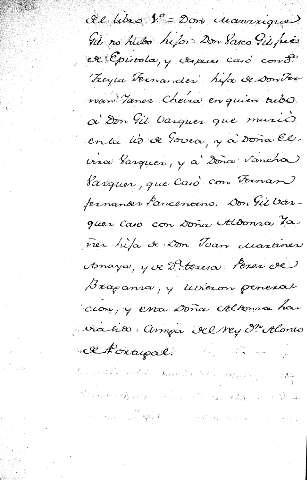 del libro Vº = Don Manrrique
Gil no hubo hijos = Don Vasco Gil fué
de Epistola, y despues casó con Dª
Freyra Fernandes hija de Don Fer
nan Yanes Cheira en quien tubo
á Don Gil Vasquez que murió
en la lid de Govea, y á Doña El
vira Vasquez, y á Doña Sancha
Vasquez, que casó con Fernan
fernandez Pancenteno. Don Gil Vas
quez caso con Doña Aldonza Ya
ñez hija de Don Juan Martinez
Amaya, y de Dª teresa Perez de
Braganza, y uvieron generat
cion, y esta Doña Aldonza ha
via sido Amiga del rey Dn Alonso
de Portugal.